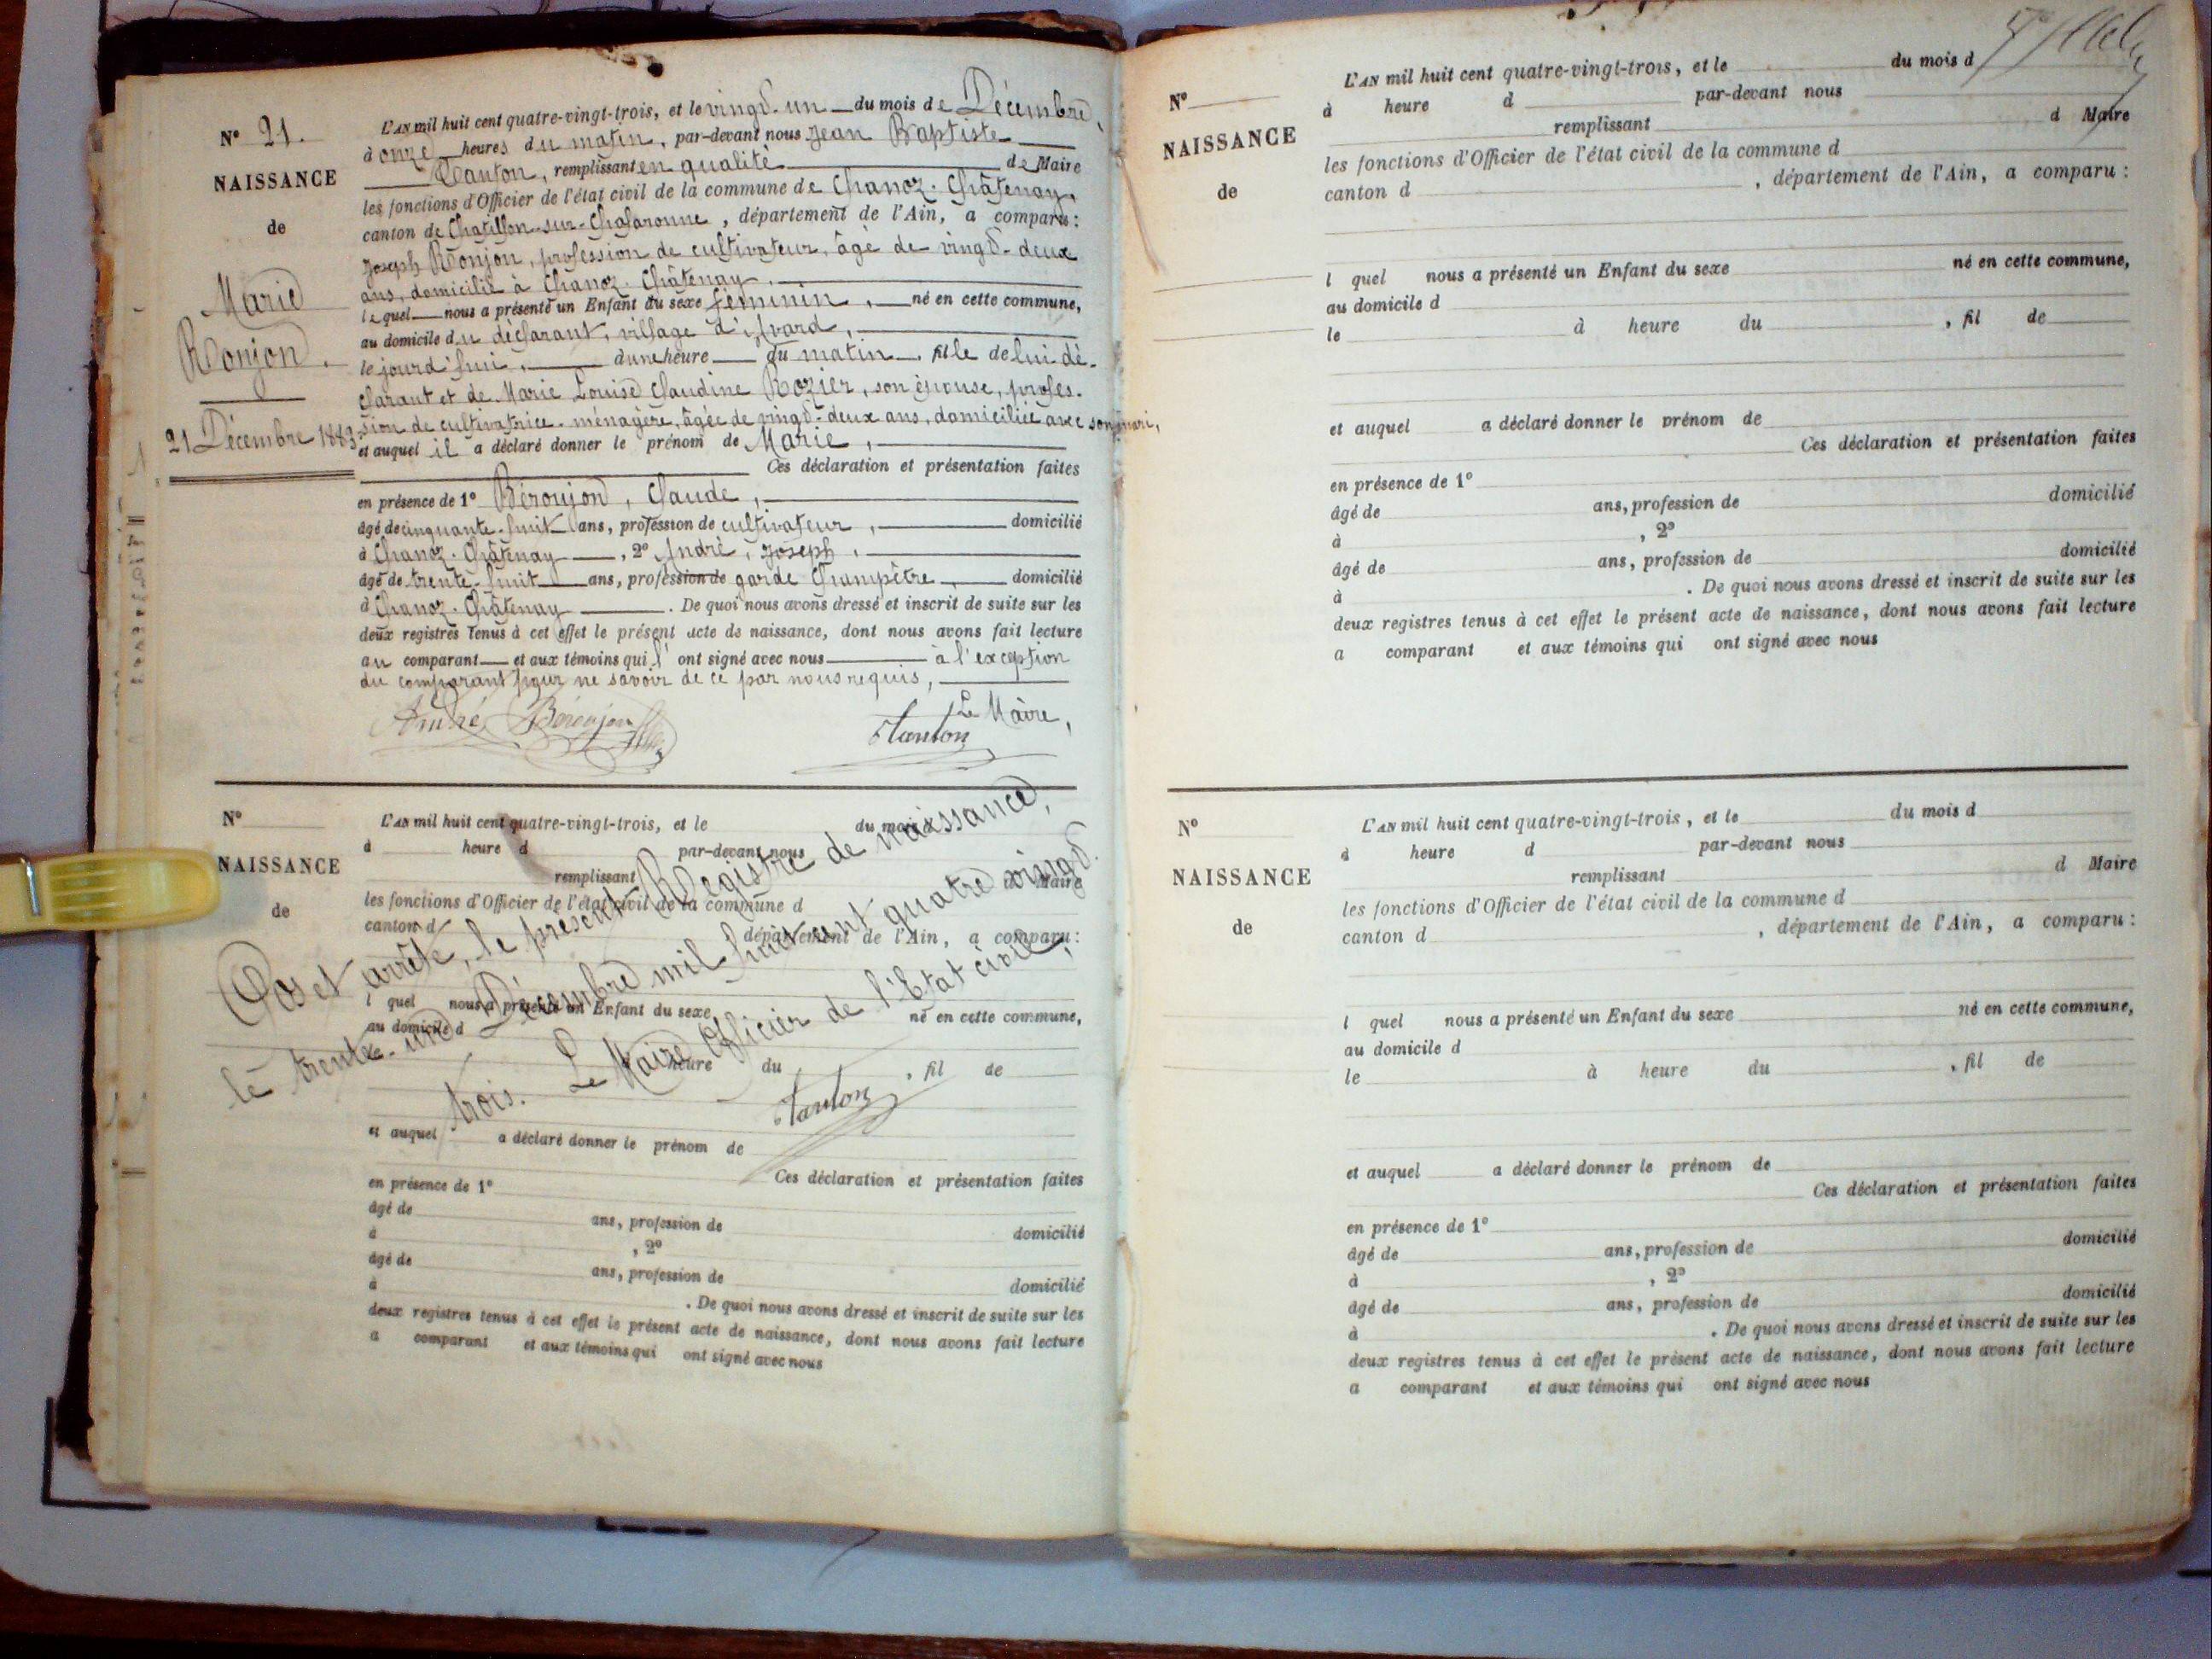 N° 21.
NAISSANCE
de
Marie
Ronjon.
21 Décembre 1883.
L'AN mil huit cent quatre-vingt-trois, et le vingt-un du mois de Décembre,
à onze heures du matin, par-devant nous Jean Baptiste
Tanton, remplissant en qualité de Maire
les fonctions d'Officier de l'état civil de la commune de Chanoz-Châtenay,
canton de Chatillon-sur-Chalaronne, département de l'Ain, a comparu:
Joseph Ronjon, profession de cultivateur, âgé de vingt-deux
ans, domicilié à Chanoz-Châtenay,
lequel nous a présenté un Enfant du sexe féminin, né en cette commune,
au domicile du déclarant, village d'Avard,
le jourd'hui, à une heure du matin, fille de lui dé-
clarant et de Marie Louise Claudine Rozier, son épouse, profes-
sion de cultivatrice-ménagère, âgée de vingt-deux ans, domiciliée avec son mari,
et auquel il a déclaré donner le prénom de Marie,
Ces déclaration et présentation faites
en présence de 1° Béroujon, Claude,
âgé de cinquante-huit ans, profession de cultivateur, domicilié
à Chanoz-Châtenay, 2° André, Joseph,
âgé de trente-huit ans, profession de garde Champêtre, domicilié
à Chanoz-Châtenay. De quoi nous avons dressé et inscrit de suite sur les
deux registres tenus à cet effet le présent acte de naissance, dont nous avons fait lecture
au comparant et aux témoins qui l' ont signé avec nous à l'exception
du comparant pour ne savoir de ce par nous requis,
André Béroujon
Le Maire,
Tanton
N°
NAISSANCE
de
L'AN mil huit cent quatre-vingt-trois, et le du mois d
à heure d par-devant nous
remplissant d Maire
les fonctions d'Officier de l'état civil de la commune d
canton d département de l'Ain, a comparu:
l quel nous a présenté un Enfant du sexe né en cette commune,
au domicile d
heure du , fil de
et auquel a déclaré donner le prénom de
Ces déclaration et présentation faites
en présence de 1°
âgé de ans, profession de domicilié
à , 2°
âgé de ans, profession de domicilié
à . De quoi nous avons dressé et inscrit de suite sur les
deux registres tenus à cet effet le présent acte de naissance, dont nous avons fait lecture
a comparant et aux témoins qui ont signé avec nous
Clos et arrêté, le présent Registre de naissance,
le trente-un Décembre mil huit cent quatre vingt-
trois. Le Maire Officier de l'Etat civil,
Tanton
N°
NAISSANCE
de
L'AN mil huit cent quatre-vingt-trois, et le du mois d
à heure d par-devant nous
remplissant d Maire
les fonctions d'Officier de l'état civil de la commune d
canton d , département de l'Ain, a comparu:
l quel nous a présenté un Enfant du sexe né en cette commune,
au domicile d
le à heure du , fil de
et auquel a déclaré donner le prénom de
Ces déclaration et présentation faites
en présence de 1°
âgé de ans, profession de domicilié
à , 2°
âgé de ans, profession de domicilié
à . De quoi nous avons dressé et inscrit de suite sur les
deux registres tenus à cet effet le présent acte de naissance, dont nous avons fait lecture
a comparant et aux témoins qui ont signé avec nous
N°
NAISSANCE
de
L'AN mil huit cent quatre-vingt-trois, et le du mois d
à heure d par-devant nous
remplissant d Maire
les fonctions d'Officier de l'état civil de la commune d
canton d , département de l'Ain, a comparu:
l quel nous a présenté un Enfant du sexe né en cette commune,
au domicile d
le à heure du , fil de
et auquel a déclaré donner le prénom de
Ces déclaration et présentation faites
en présence de 1°
âgé de ans, profession de domicilié
à , 2°
âgé de ans, profession de domicilié
à . De quoi nous avons dressé et inscrit de suite sur les
deux registres tenus à cet effet le présent acte de naissance, dont nous avons fait lecture
a comparant et aux témoins qui ont signé avec nous